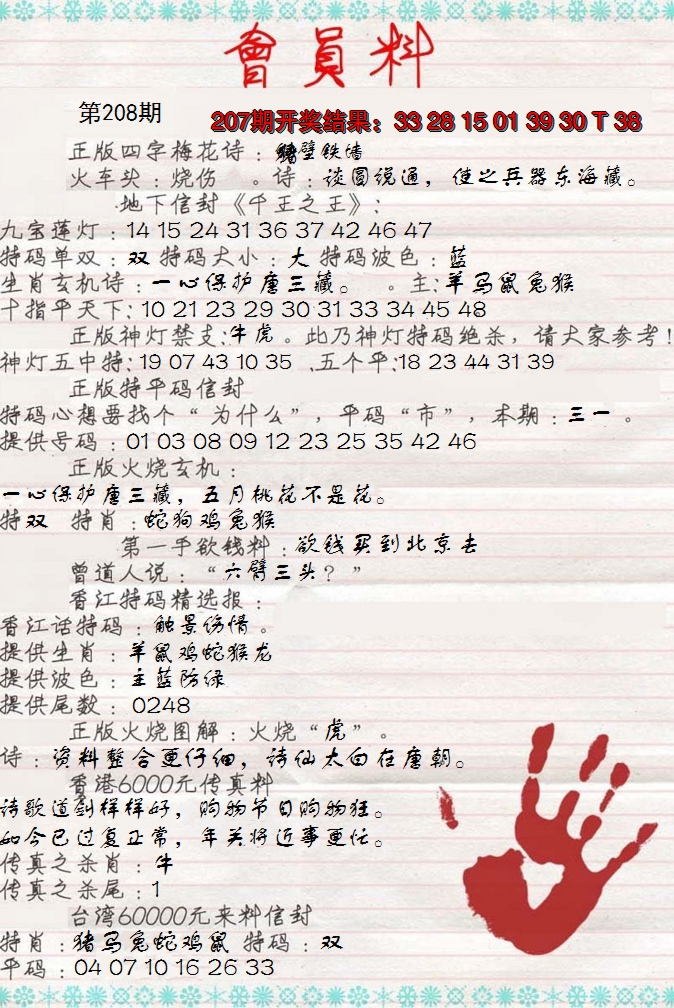 會員料
第208期
207期开奖结果：33 28 15 01 39 30 T 38
正版四字梅花诗：壁铁墙
火车头：烧伤 。诗：谈圆说通，使之兵器东海藏。
地下信封《千王之王》：
九宝莲灯：14 15 24 31 36 37 42 46 47
特码单双：双 特码大小：大 特码波色：蓝
生肖玄机诗：一心保护唐三藏。 。主：羊马鼠兔猴
十指平天下：10 21 23 29 30 31 33 34 45 48
正版神灯禁支：牛虎。此乃神灯特码绝杀，请大家参考！
神灯五中特：19 07 43 10 35 、五个平：18 23 44 31 39
正版特平码信封
特码心想要找个“为什么”，平码“市”，本期：三一。
提供号码：01 03 08 09 12 23 25 35 42 46
正版火烧玄机：
一心保护唐三藏，五月桃花不是花。
特双 特肖：蛇狗鸡兔猴
第一手欲钱料：欲钱买到北京去
曾道人说：“六臂三头？”
香江特码精选报：
香江话特码：触景伤情。
提供生肖：羊鼠鸡蛇猴龙
提供波色：主蓝防绿
提供尾数：0248
正版火烧图解：火烧“虎”。
诗：资料整合更仔细，诗仙太白在唐朝。
香港6000元传真料
诗歌道到样样好，购物节日购物狂。
如今已过复正常，年关将近事更忙。
传真之杀肖：牛
传真之杀尾：1
台湾60000元来料信封
特肖：猪马兔蛇鸡鼠 特码：双
平码：04 07 10 16 26 33